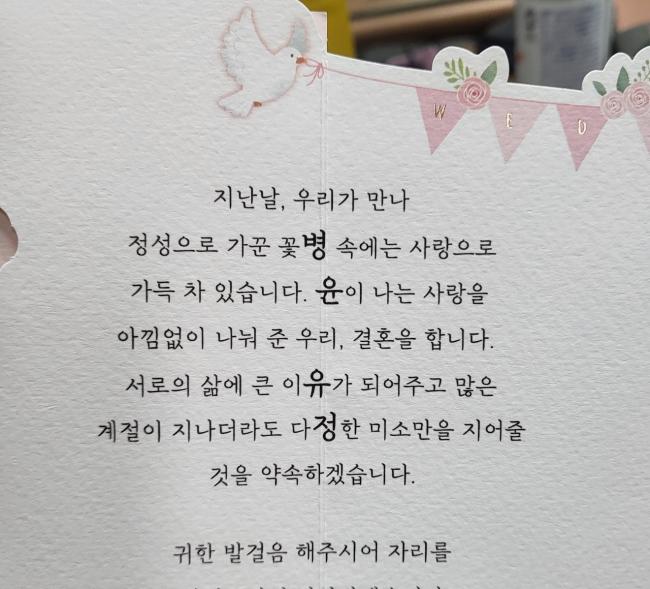 W E D
지난날, 우리가 만나
정성으로 가꾼 꽃병 속에는 사랑으로
가득 차 있습니다. 윤이 나는 사랑을
아낌없이 나눠 준 우리, 결혼을 합니다.
서로의 삶에 큰 이유가 되어주고 많은
계절이 지나더라도 다정한 미소만을 지어줄
것을 약속하겠습니다.
귀한 발걸음 해주시어 자리를